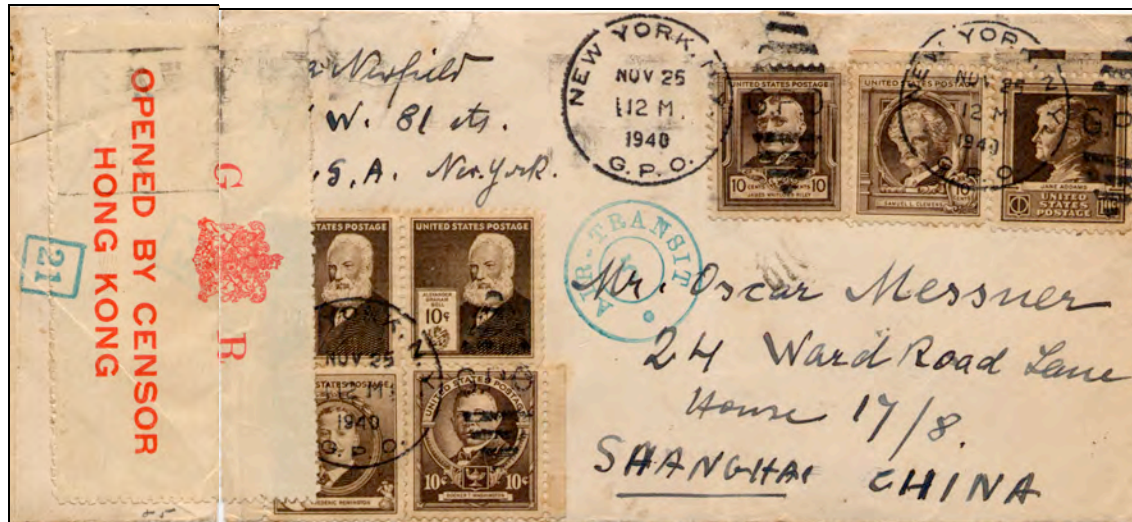 OPENED BY CENSOR
HONG KONG
21
G
R
Newfield
W. 81 sts.
S. A. New York.
NEW YORK, N.
NOV 25
12 M.
1940
G.P.O.
UNITED STATES POSTAGE
10 CENTS 10
JAMES WHITCOMB RILEY
UNITED STATES POSTAGE
10¢
SAMUEL L. CLEMENS
NEW YORK, N.Y.
NOV 25
12 M
1940
G.P.O.
JANE ADDAMS
UNITED
STATES
POSTAGE
10¢
STATES POSTAGE
UNITED STATES POSTAGE
ALEXANDER
GRAHAM
BELL
10¢
NOV 25
12 M
1940
G.P.O.
STATES POSTAGE
FREDERIC REMINGTON
UNITED STATES POSTAGE
10¢ 10¢
BOOKER T. WASHINGTON
AIR-TRANSIT
Mr. Oscar Messner
24 Ward Road Lane
House 17/8.
SHANGHAI CHINA